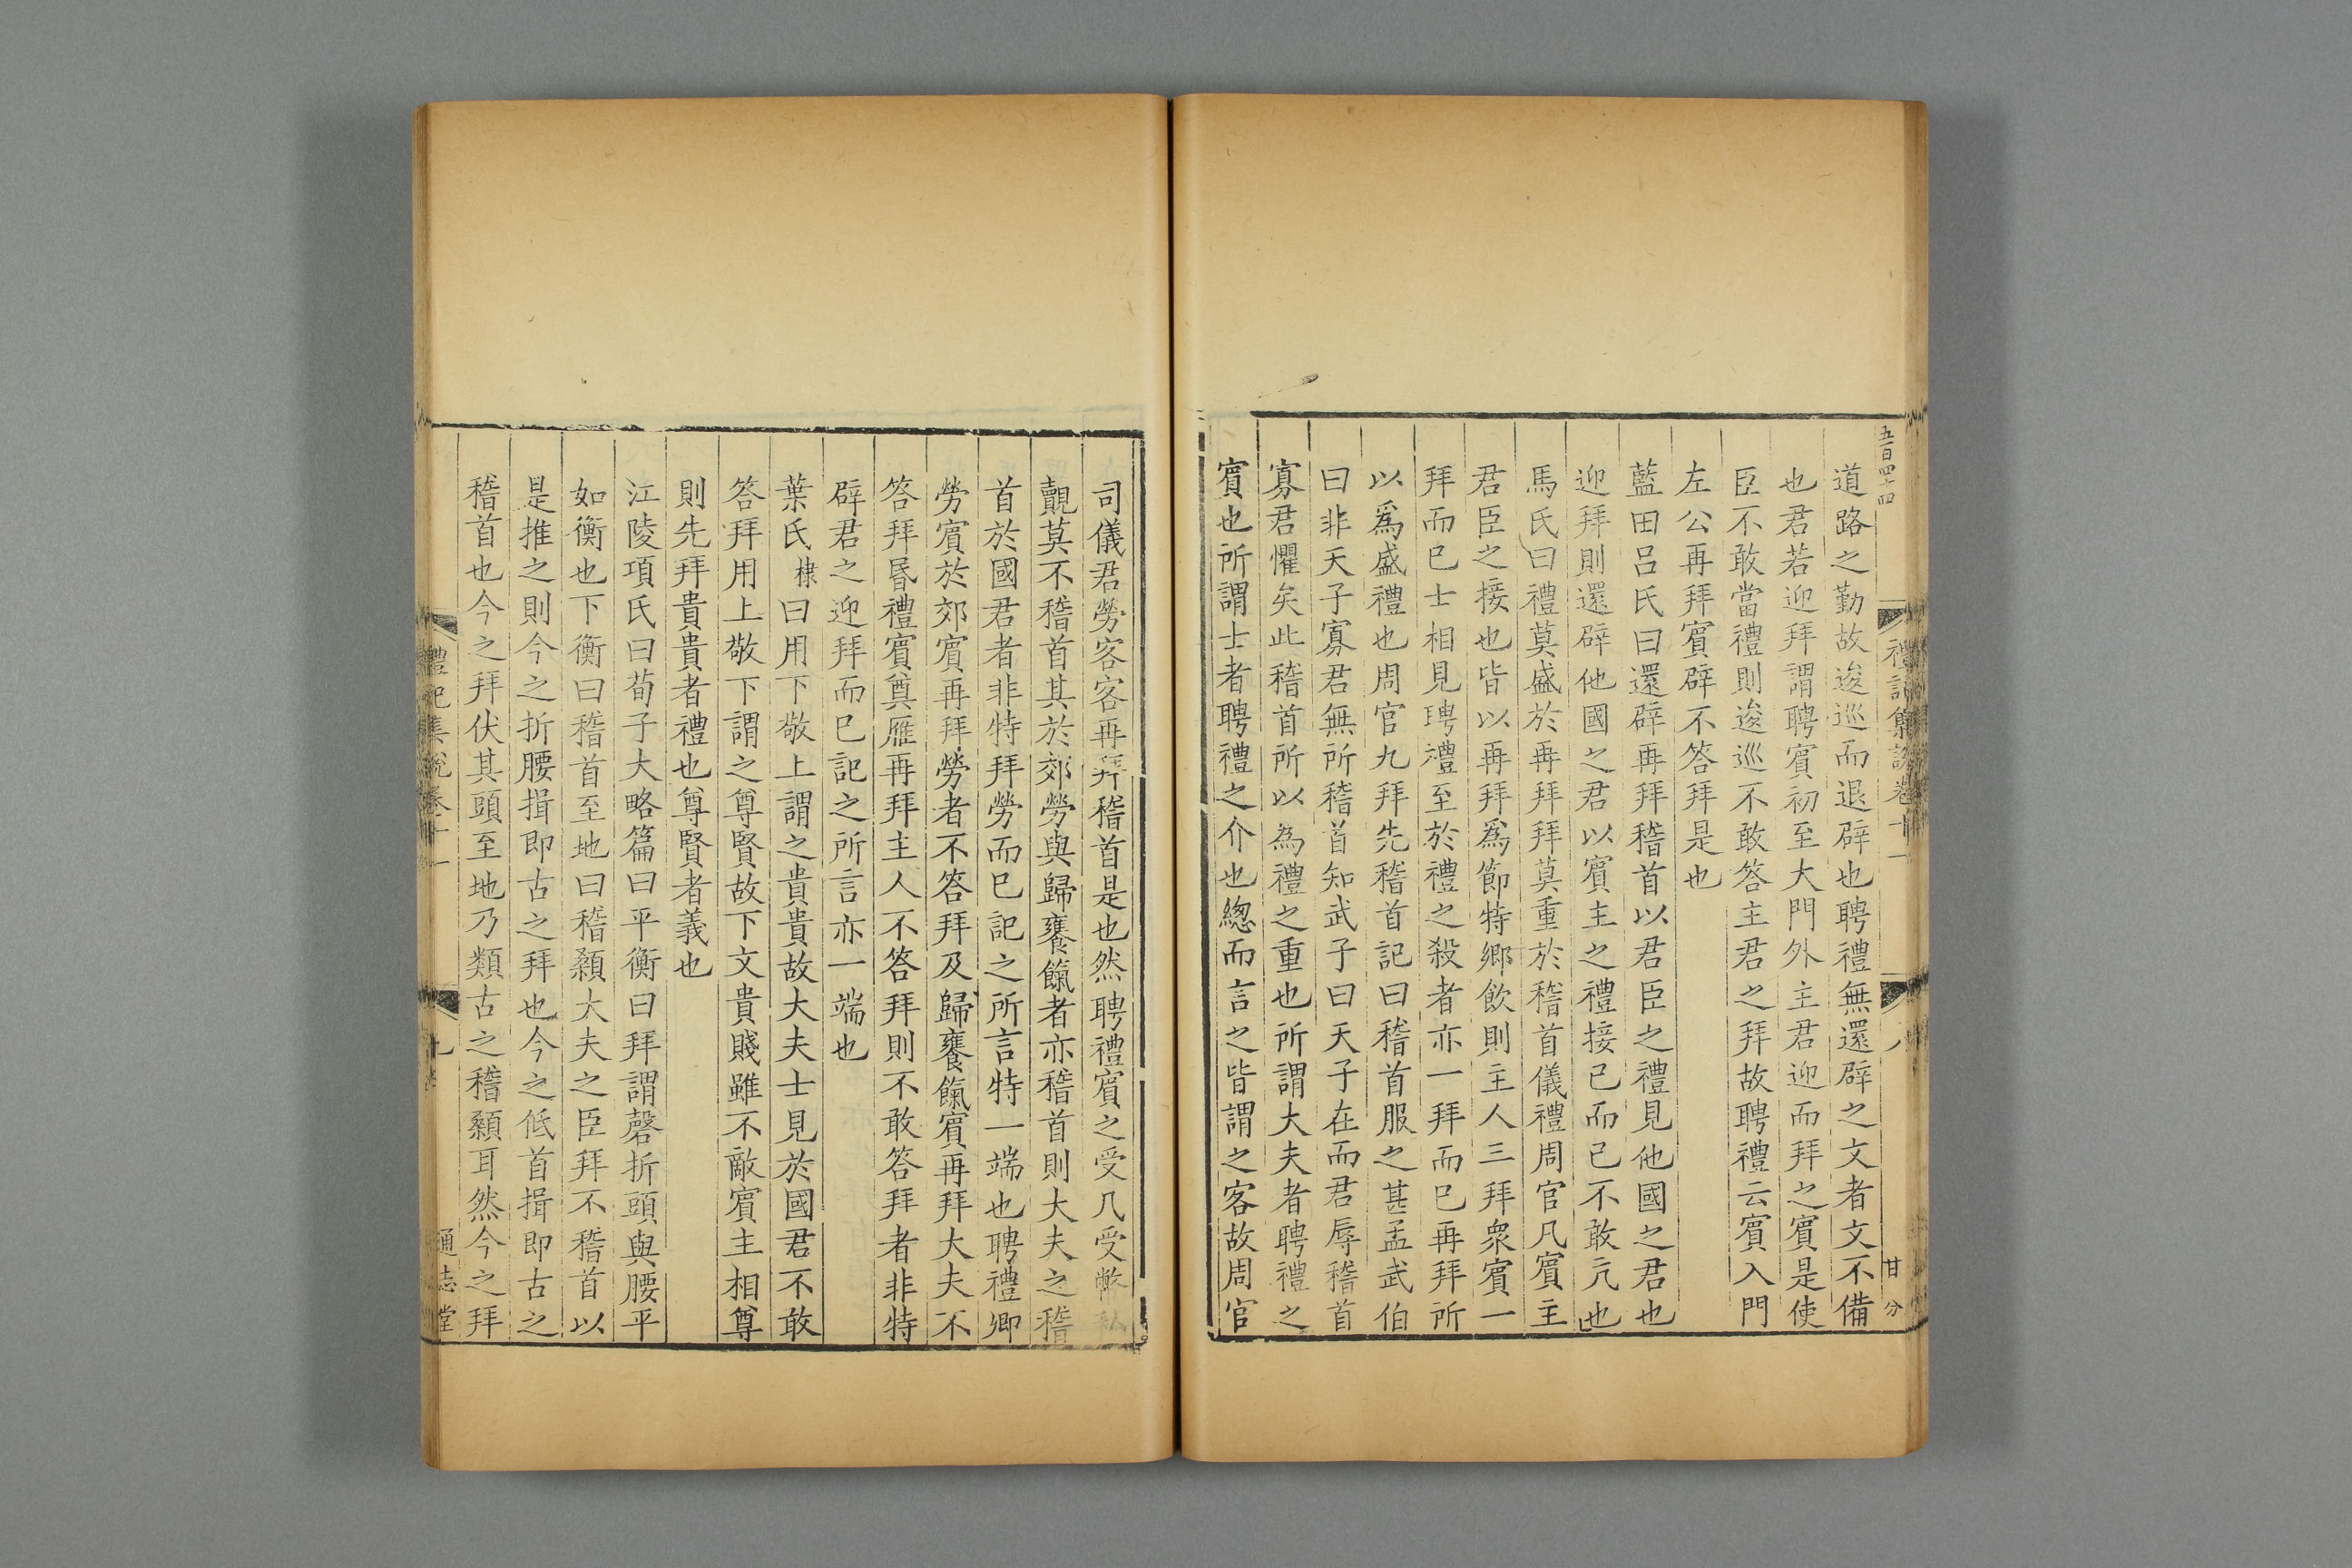 五百四十四
禮記集說卷十一
八
甘
分
道路之勤故逡巡而退辟也聘禮無還辟之文者文不備
也君若迎拜謂聘賓初至大門外主君迎而拜之賓是使
臣不敢當禮則逡巡不敢答主君之拜故聘禮云賓入門
左公再拜賓辟不答拜是也
藍田呂氏曰還辟再拜稽首以君臣之禮見他國之君也
迎拜則還辟他國之君以賓主之禮接己而己不敢亢也
馬氏曰禮莫盛於再拜拜莫重於稽首儀禮周官凡賓主
君臣之接也皆以再拜爲節特鄉飲則主人三拜衆賓一
拜而已士相見聘禮至於禮之殺者亦一拜而已再拜所
以爲盛禮也周官九拜先稽首記曰稽首服之甚孟武伯
曰非天子寡君無所稽首知武子曰天子在而君辱稽首
寡君懼矣此稽首所以為禮之重也所謂大夫者聘禮之
賓也所謂士者聘禮之介也緫而言之皆謂之客故周官
司儀君勞客客再拜稽首是也然聘禮賓之受几受幣私
覿莫不稽首其於郊勞與歸饔餼者亦稽首則大夫之稽
首於國君者非特拜勞而已記之所言特一端也聘禮卿
勞賓於郊賓再拜勞者不答拜及歸饔餼賓再拜大夫不
答拜昏禮賓奠雁再拜主人不答拜則不敢答拜者非特
辟君之迎拜而已記之所言亦一端也
葉氏棣曰用下敬上謂之貴貴故大夫士見於國君不敢
答拜用上敬下謂之尊賢故下文貴賤雖不敵賓主相尊
則先拜貴貴者禮也尊賢者義也
江陵項氏曰荀子大略篇曰平衡曰拜謂磬折頭與腰平
如衡也下衡曰稽首至地曰稽顙大夫之臣拜不稽首以
是推之則今之折腰揖即古之拜也今之低首揖即古之
稽首也今之拜伏其頭至地乃類古之稽顙耳然今之拜
禮記集說卷十一
九
通志堂